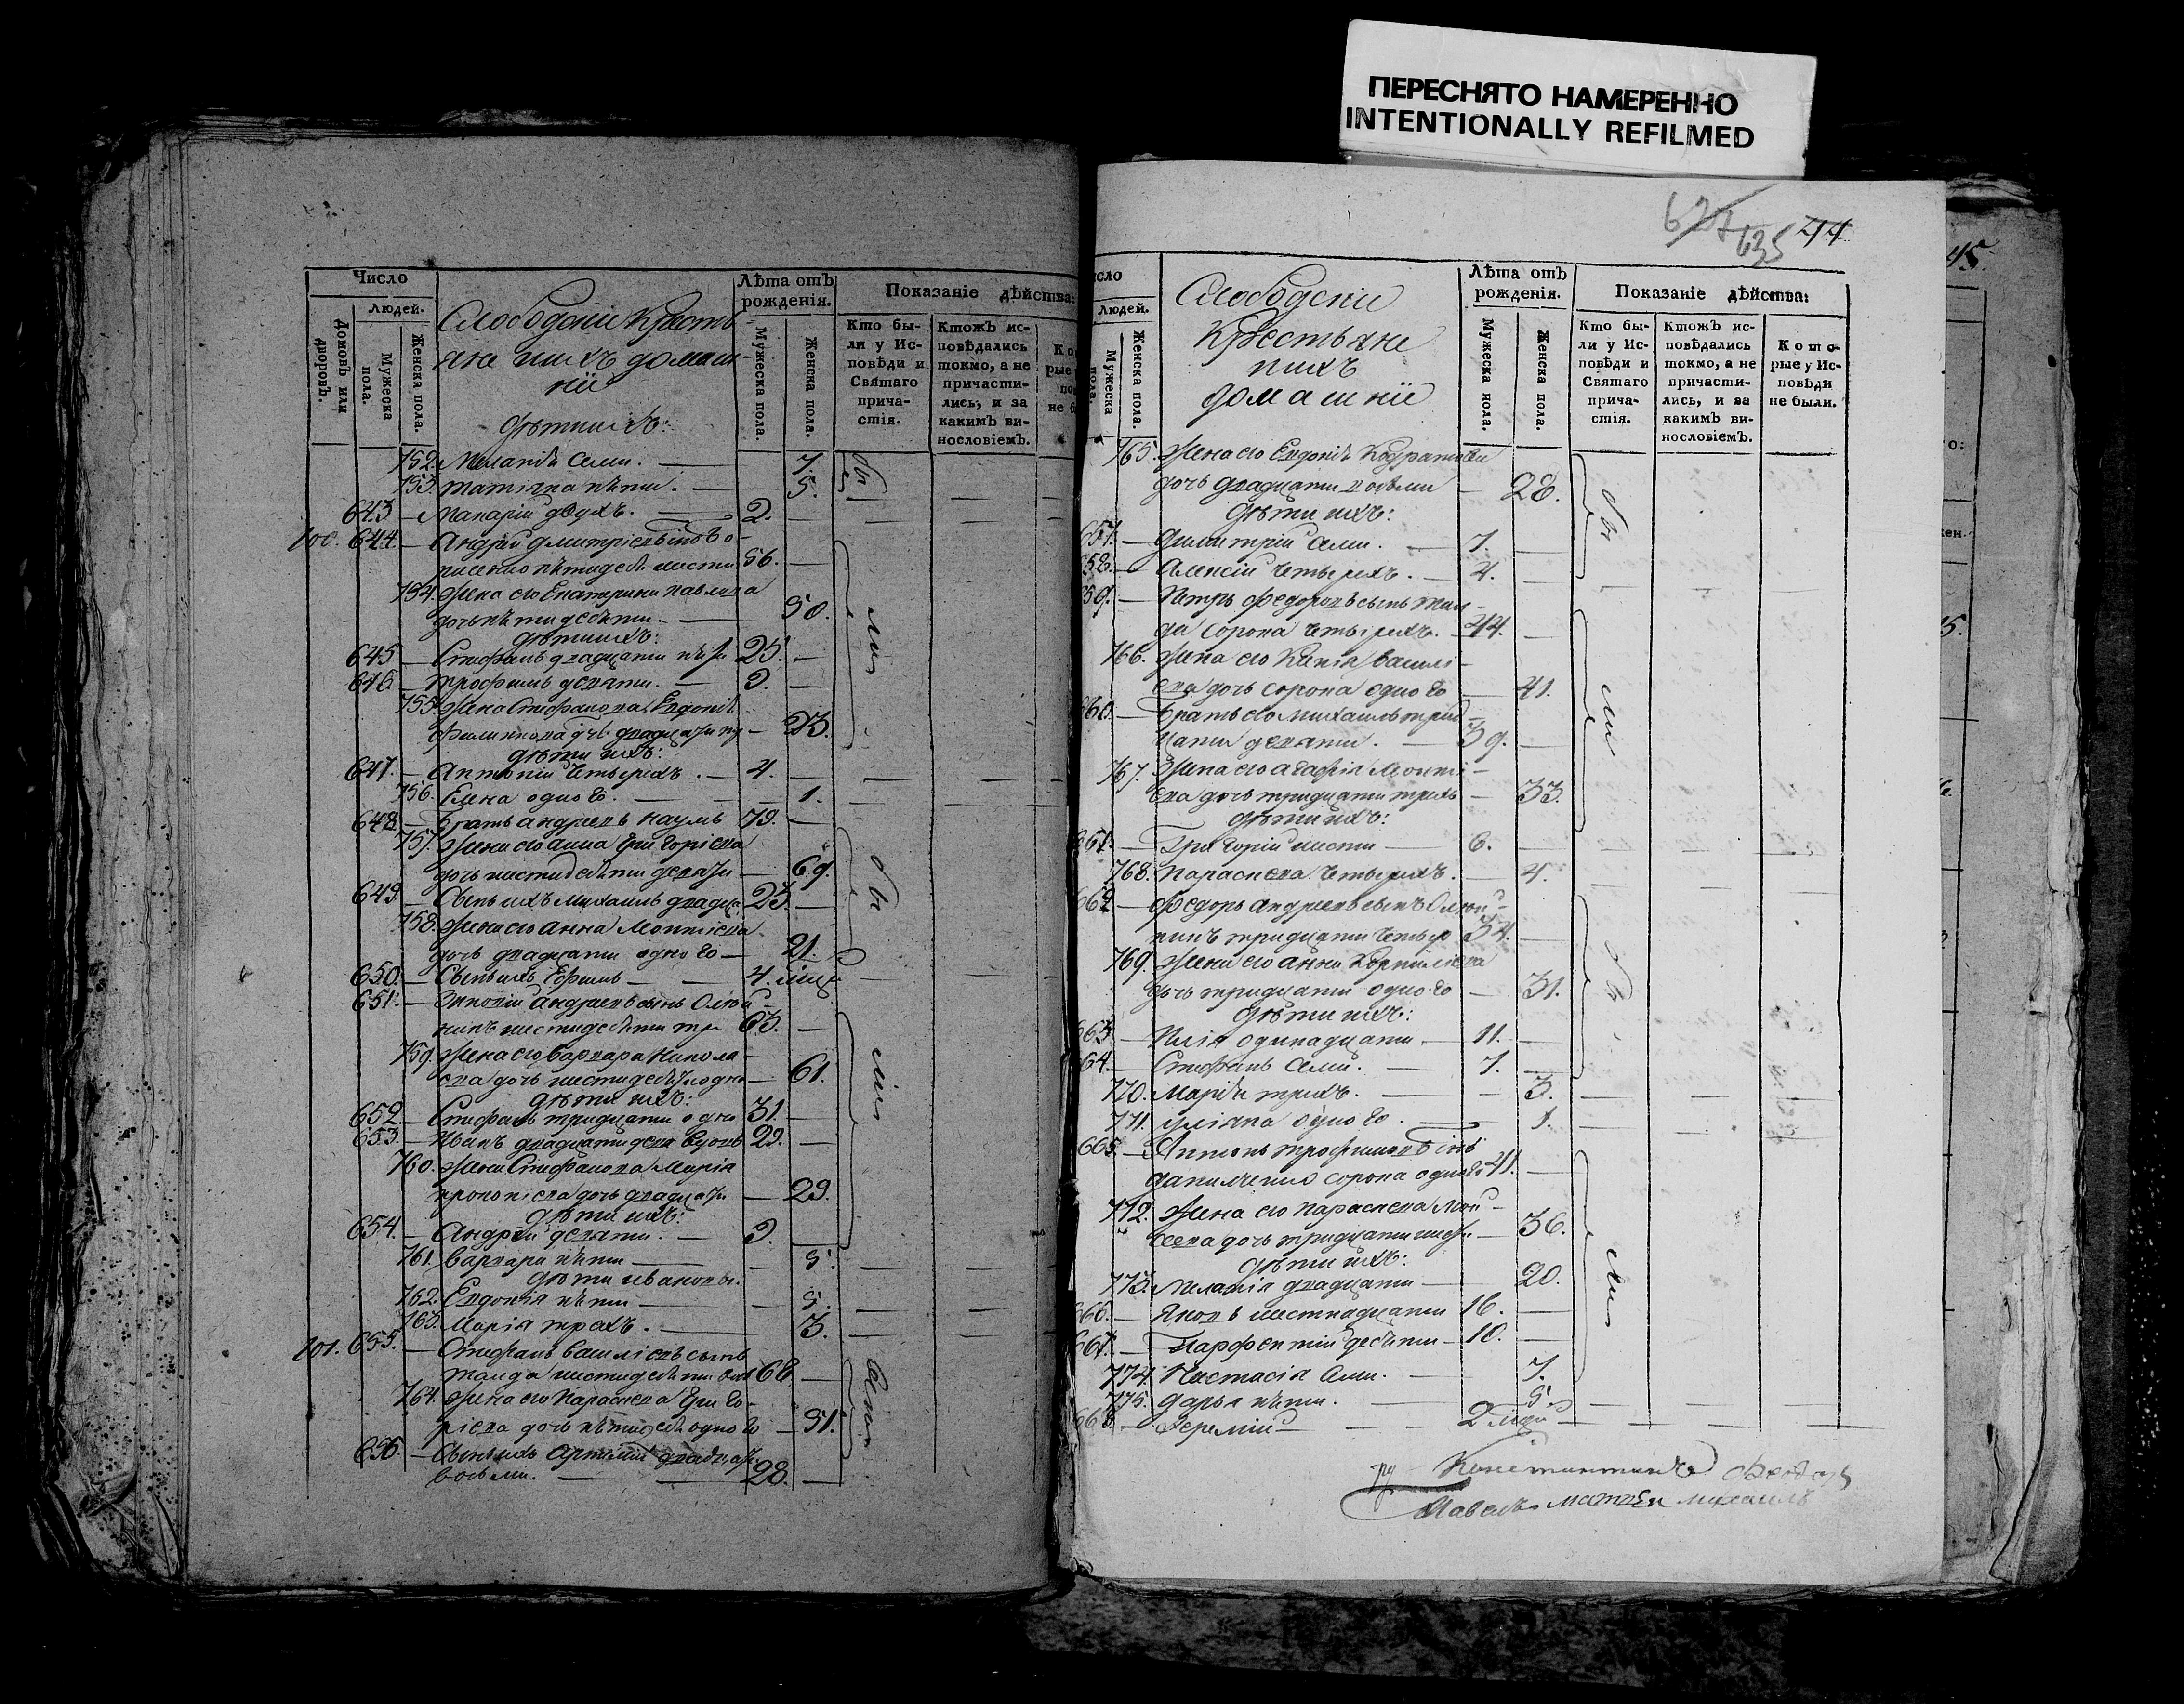 ПЕРЕСНЯТО НАМЕРЕННО
INTENTIONALLY REFILMED
Число
Людей.
Домовъ или дворовъ.
Мужеска пола.
Женска пола.
Слободскіи Крестьяне ихъ домашніи
Лѣта отъ рожденія.
Мужеска пола.
Женска пола.
Показаніе дѣйства:
Кто были у Исповѣди и Святаго причастія.
Ктожъ исповѣдались токмо, а не причастились, и за какимъ винословіемъ.
Дѣти ихъ:
752. Меланія семи. — 7.
753. Татіяна пяти. — 5.
643 — Макарій двухъ. — 2.
100. 644. — Андрей Дмитріевъ сынъ
пятидес. шести 56. —
754. Жена его Екатерина Павлова
дочь пятидесяти. — 50.
дѣти ихъ:
645 — Стефанъ двадцати пяти 25. —
646 — Трофимъ девяти. — 9. —
755. Жена Стефанова Евдокія
Филиппова дочь двадцати тр — 23.
дѣти ихъ:
647. — Антоній четырехъ. — 4. —
756. Елена одного. — 1.
648 — Братъ Андреевъ Наумъ 79. —
757. Жена его Анна Григоріева
дочь шестидесяти девяти — 69.
649 — Сынъ ихъ Михаилъ двадца 23. —
758. Жена его Анна Моѵсіева
дочь двадцати одного — 21.
650. — Сынъ ихъ Ефимъ — 4. мѣсяц
651. — Зиновій Андреевъ сынъ Олей-
никъ шестидесяти тре 63. —
759. Жена его Варвара Никола-
ева дочь шестидесяти одно — 61.
дѣти ихъ:
652 — Стефанъ тридцати одно 31. —
653. — Иванъ двадцати девя 29. —
760. Жена Стефанова Марія
Прокопіева дочь двадцати — 29.
дѣти ихъ:
654. — Андрей девяти. — 9.
761. Варвара пяти — 5.
дѣти Ивановы.
762. Евдокія пяти — 5.
763. Марія трехъ. — 3.
101. 655. — Стефанъ Василіевъ сынъ
Жалда шестидесяти осм 68 —
764. Жена его Параскева Григо-
ріева дочь пятидес. одного — 51.
656 — Сынъ ихъ Артемій двадцати
восьми. — 28. —
были
635 44
Людей.
Мужеска пола.
Женска пола.
Слободскіи
Крестьяне
ихъ
домашніи
Лѣта отъ рожденія.
Мужеска пола.
Женска пола.
Показаніе дѣйства:
Кто были у Исповѣди и Святаго причастія.
Ктожъ исповѣдались токмо, а не причастились, и за какимъ винословіемъ.
Которые у Исповѣди не были.
765. Жена его Евдокія Кодратова
дочь двадцати восьми — 28.
дѣти ихъ:
657. — Димитрій семи. — 7. —
658. — Алексій четырехъ. — 4. —
659. — Петръ Федоровъ сынъ Жал-
да сорока четырехъ. — 44. —
766. Жена его Ксенія Василі-
ева дочь сорока одного — 41.
660. — Братъ его Михаилъ трид-
цати девяти. — 39. —
767. Жена его Агафія Моѵсі-
ева дочь тридцати трехъ — 33.
дѣти ихъ:
661. — Григорій шести — 6. —
768. Параскева четырехъ. — 4.
662 — Федоръ Андреевъ сынъ Олей-
никъ тридцати четыр 34. —
769. Жена его Анна Корниліева
дочь тридцати одного — 31.
дѣти ихъ:
663. — Илія одинадцати. — 11. —
664. — Стефанъ семи. — 7. —
770. Марія трехъ. — 3.
771. Уліяна одного. — 1.
665. — Антонъ Трофимовъ сынъ
Даниленко сорока одного 41. —
772. Жена его Параскева Мой-
сеева дочь тридцати шест — 36.
дѣти ихъ:
773. Меланія двадцати — 20.
666. — Яковъ шестнадцати 16. —
667. — Парфентій десяти — 10. —
774. Настасія семи. — 7.
775. Дарья пяти. — 5.
668. — Іеремій — 2 мѣся
были
Константинъ Федоръ
Павелъ Матвей Михаилъ
45.